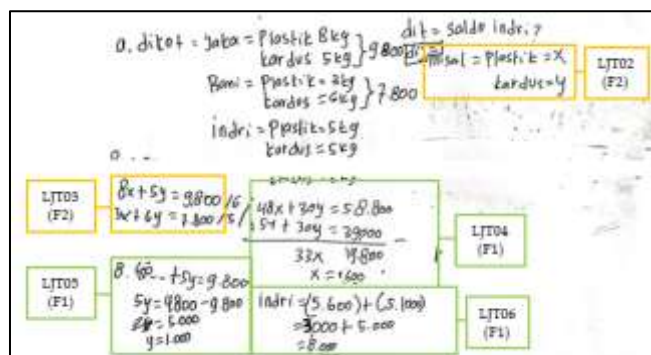 a. diket = Jaka = Plastik 8kg
kardus 5kg } 9.800
dit = Saldo indri?
misal = Plastik = x
kardus = y
LJT02
(F2)
Romi = Plastik = 3kg
kardus = 6kg } 7.800
indri = Plastik = 5kg
kardus = 5kg
LJT03
(F2)
8x + 5y = 9.800 /6
3x + 6y = 7.800 /5
48x + 30y = 58.800
15x + 30y = 39000
33x 19.800
x = 600
LJT04
(F1)
LJT05
(F1)
+5y = 9.800
5y = 9800 - 4.800
5.000
y = 1.000
indri = (5.600) + (5.1000)
= 3000 + 5.000
= 8.000
LJT06
(F1)